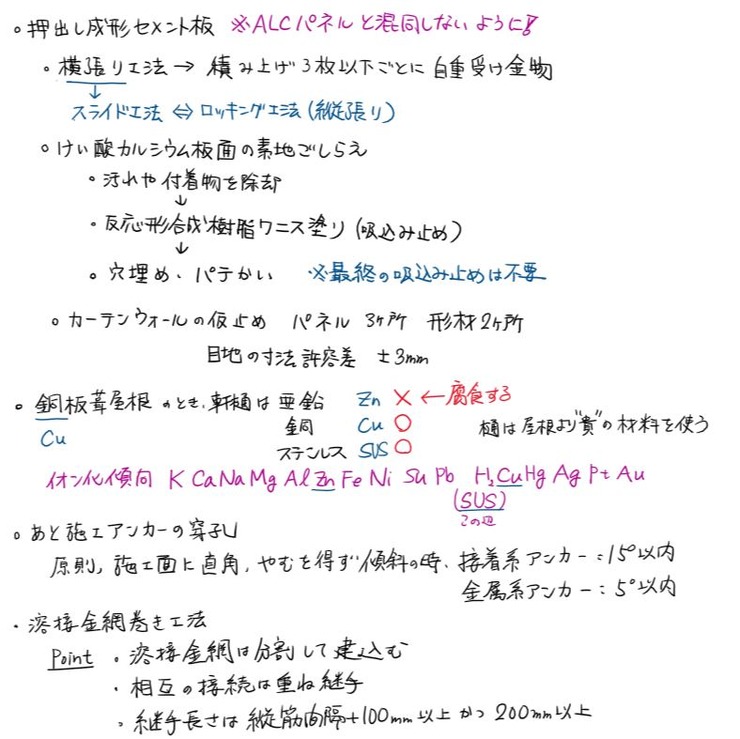 。押出し成形セメント板 ※ALCパネルと混同しないように!!
・横張り工法→ 積み上げ3枚以下ごとに自重受け金物
↓
スライド工法 ⇔ ロッキング工法(縦張り)
○けい酸カルシウム板面の素地ごしらえ
・汚れや付着物を除却
↓
・反応形合成樹脂ワニス塗り(吸込み止め)
↓
・穴埋め・パテかい ※最終の吸込み止めは不要
○カーテンウォールの仮止め パネル 3ヶ所 形材2ヶ所
目地の寸法許容差 ±3mm
・銅板葺屋根のとき、軒樋は亜鉛 Zn × ←腐食する
Cu 銅 Cu ○ 樋は屋根より"貴"の材料を使う
ステンレス SUS ○
イオン化傾向 K Ca Na Mg Al Zn Fe Ni Su Pb H₂ Cu Hg Ag Pt Au
(SUS)
この辺
○あと施工アンカーの穿孔
原則, 施工面に直角, やむを得ず傾斜の時、接着系アンカー:15°以内
金属系アンカー:5°以内
・溶接金網巻き工法
Point ・溶接金網は分割して建込む
・相互の接続は重ね継手
・継手長さは縦筋間隔+100mm以上かつ200mm以上